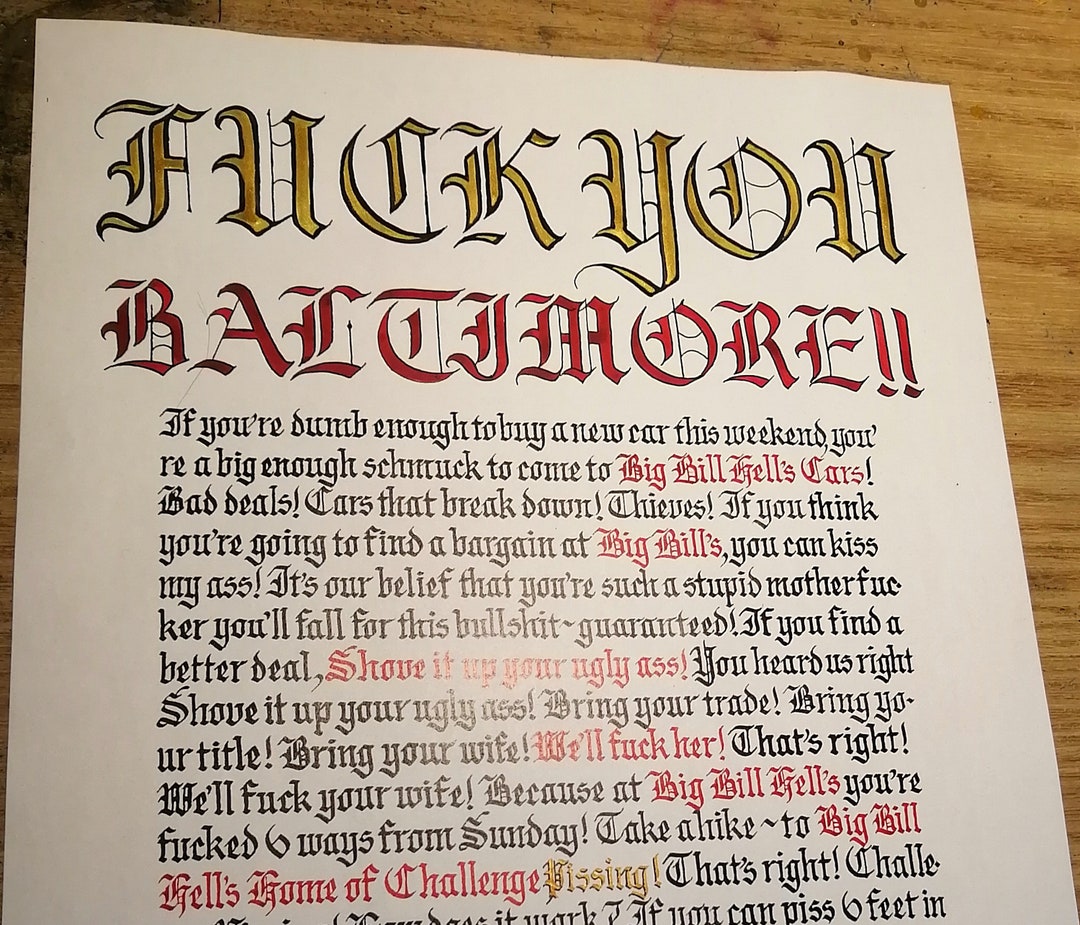 FUCK YOU
BALTIMORE!!
If you're dumb enough to buy a new car this weekend, you'
re a big enough schmuck to come to Big Bill Hell's Cars!
Bad deals! Cars that break down! Thieves! If you think
you're going to find a bargain at Big Bill's, you can kiss
my ass! It's our belief that you're such a stupid motherfuc-
ker you'll fall for this bullshit~guaranteed! If you find a
better deal, Shove it up your ugly ass! You heard us right
Shove it up your ugly ass! Bring your trade! Bring yo-
ur title! Bring your wife! We'll fuck her! That's right!
We'll fuck your wife! Because at Big Bill Hell's you're
fucked 6 ways from Sunday! Take a hike ~ to Big Bill
Hell's Home of Challenge Pissing! That's right! Challe-
How does it work? If you can piss 6 feet in